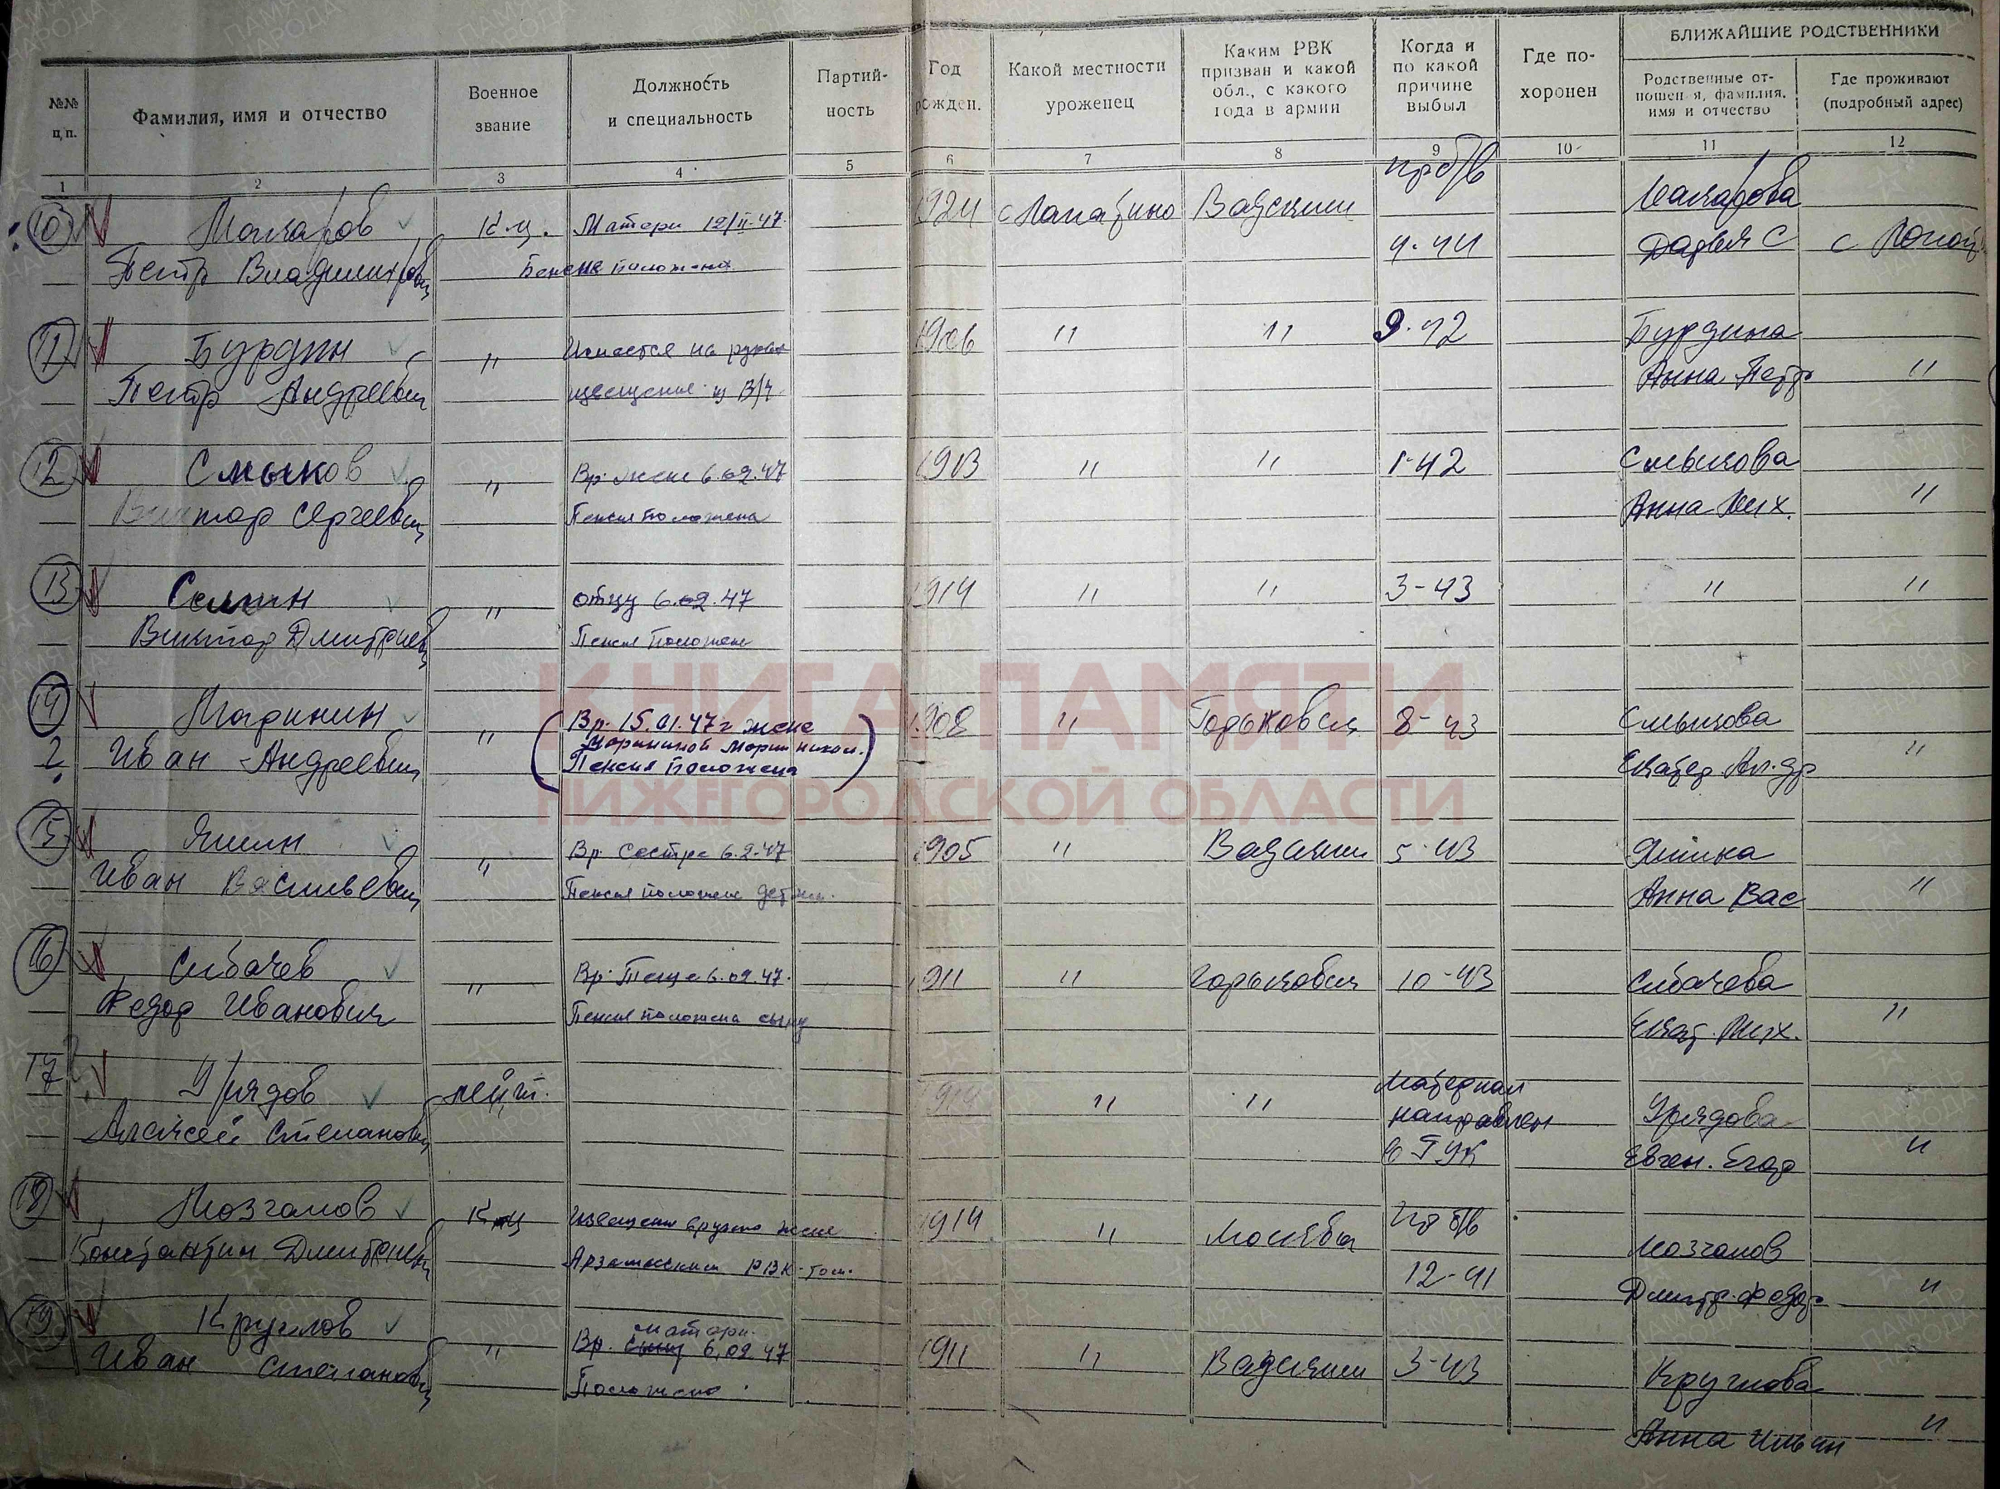 №№ п.п.
Фамилия, имя и отчество
Военное звание
Должность и специальность
Партийность
Год рожден.
Какой местности уроженец
Каким РВК призван и какой обл., с какого года в армии
Когда и по какой причине выбыл
Где похоронен
БЛИЖАЙШИЕ РОДСТВЕННИКИ
Родственные отношения, фамилия, имя и отчество
Где проживают (подробный адрес)
1 2 3 4 5 6 7 8 9 10 11 12
пр б/в
10 Мочаров К-ц. Матери 12/II-47. 1924 с Лопатино Вадским Мачарова
Петр Владимирович Пенсия положена 4-44 Дарья С с
11 Бурдин " Имеется на руках 1906 " " 9-42 Бурдина
Петр Андреевич извещение из В/ч Анна Петр "
12 Смыков " Вр. жене 6.02.47 1913 " " 1-42 Смыкова
Виктор Сергеевич Пенсия положена Анна Мих. "
13 Селин " отцу 6.02.47 1914 " " 3-43 " "
Виктор Дмитриев Пенсия положена
14 Маринин " Вр. 15.01.47 г жене 1908 " Горьковск 8-43 Смыкова
2 Иван Андреевич Марининой Марии Никол. "
Пенсия положена
15 Яшин " Вр. Сестре 6.2.47 1905 " Вадским 5-43 Яшина
Иван Васильевич Пенсия положена Анна Вас "
16 Сибачев " Вр. Теще 6.02.47. 1911 " Горьковск 10-43 Сибачева
Федор Иванович Пенсия положена сыну Екат. Мих. "
17 Урядов лейт. 1914 " " Материал Урядова
Алексей Степанович направлен Евген. Егор "
в ГУК
18 Мозгалов К-ц Извещение вручено жене 1914 " Москвы пр б/в Мозгалов
Константин Дмитриевич Арзамасским РВК-том. 12-41 Дмитр. Федор "
19 Круглов " матери. 1911 " Вадским 3-43 Круглова
Иван Степанович Вр. сыну 6.02.47
Положена Анна Ильин "
КНИГА ПАМЯТИ
НИЖЕГОРОДСКОЙ ОБЛАСТИ
ПАМЯТЬ НАРОДА